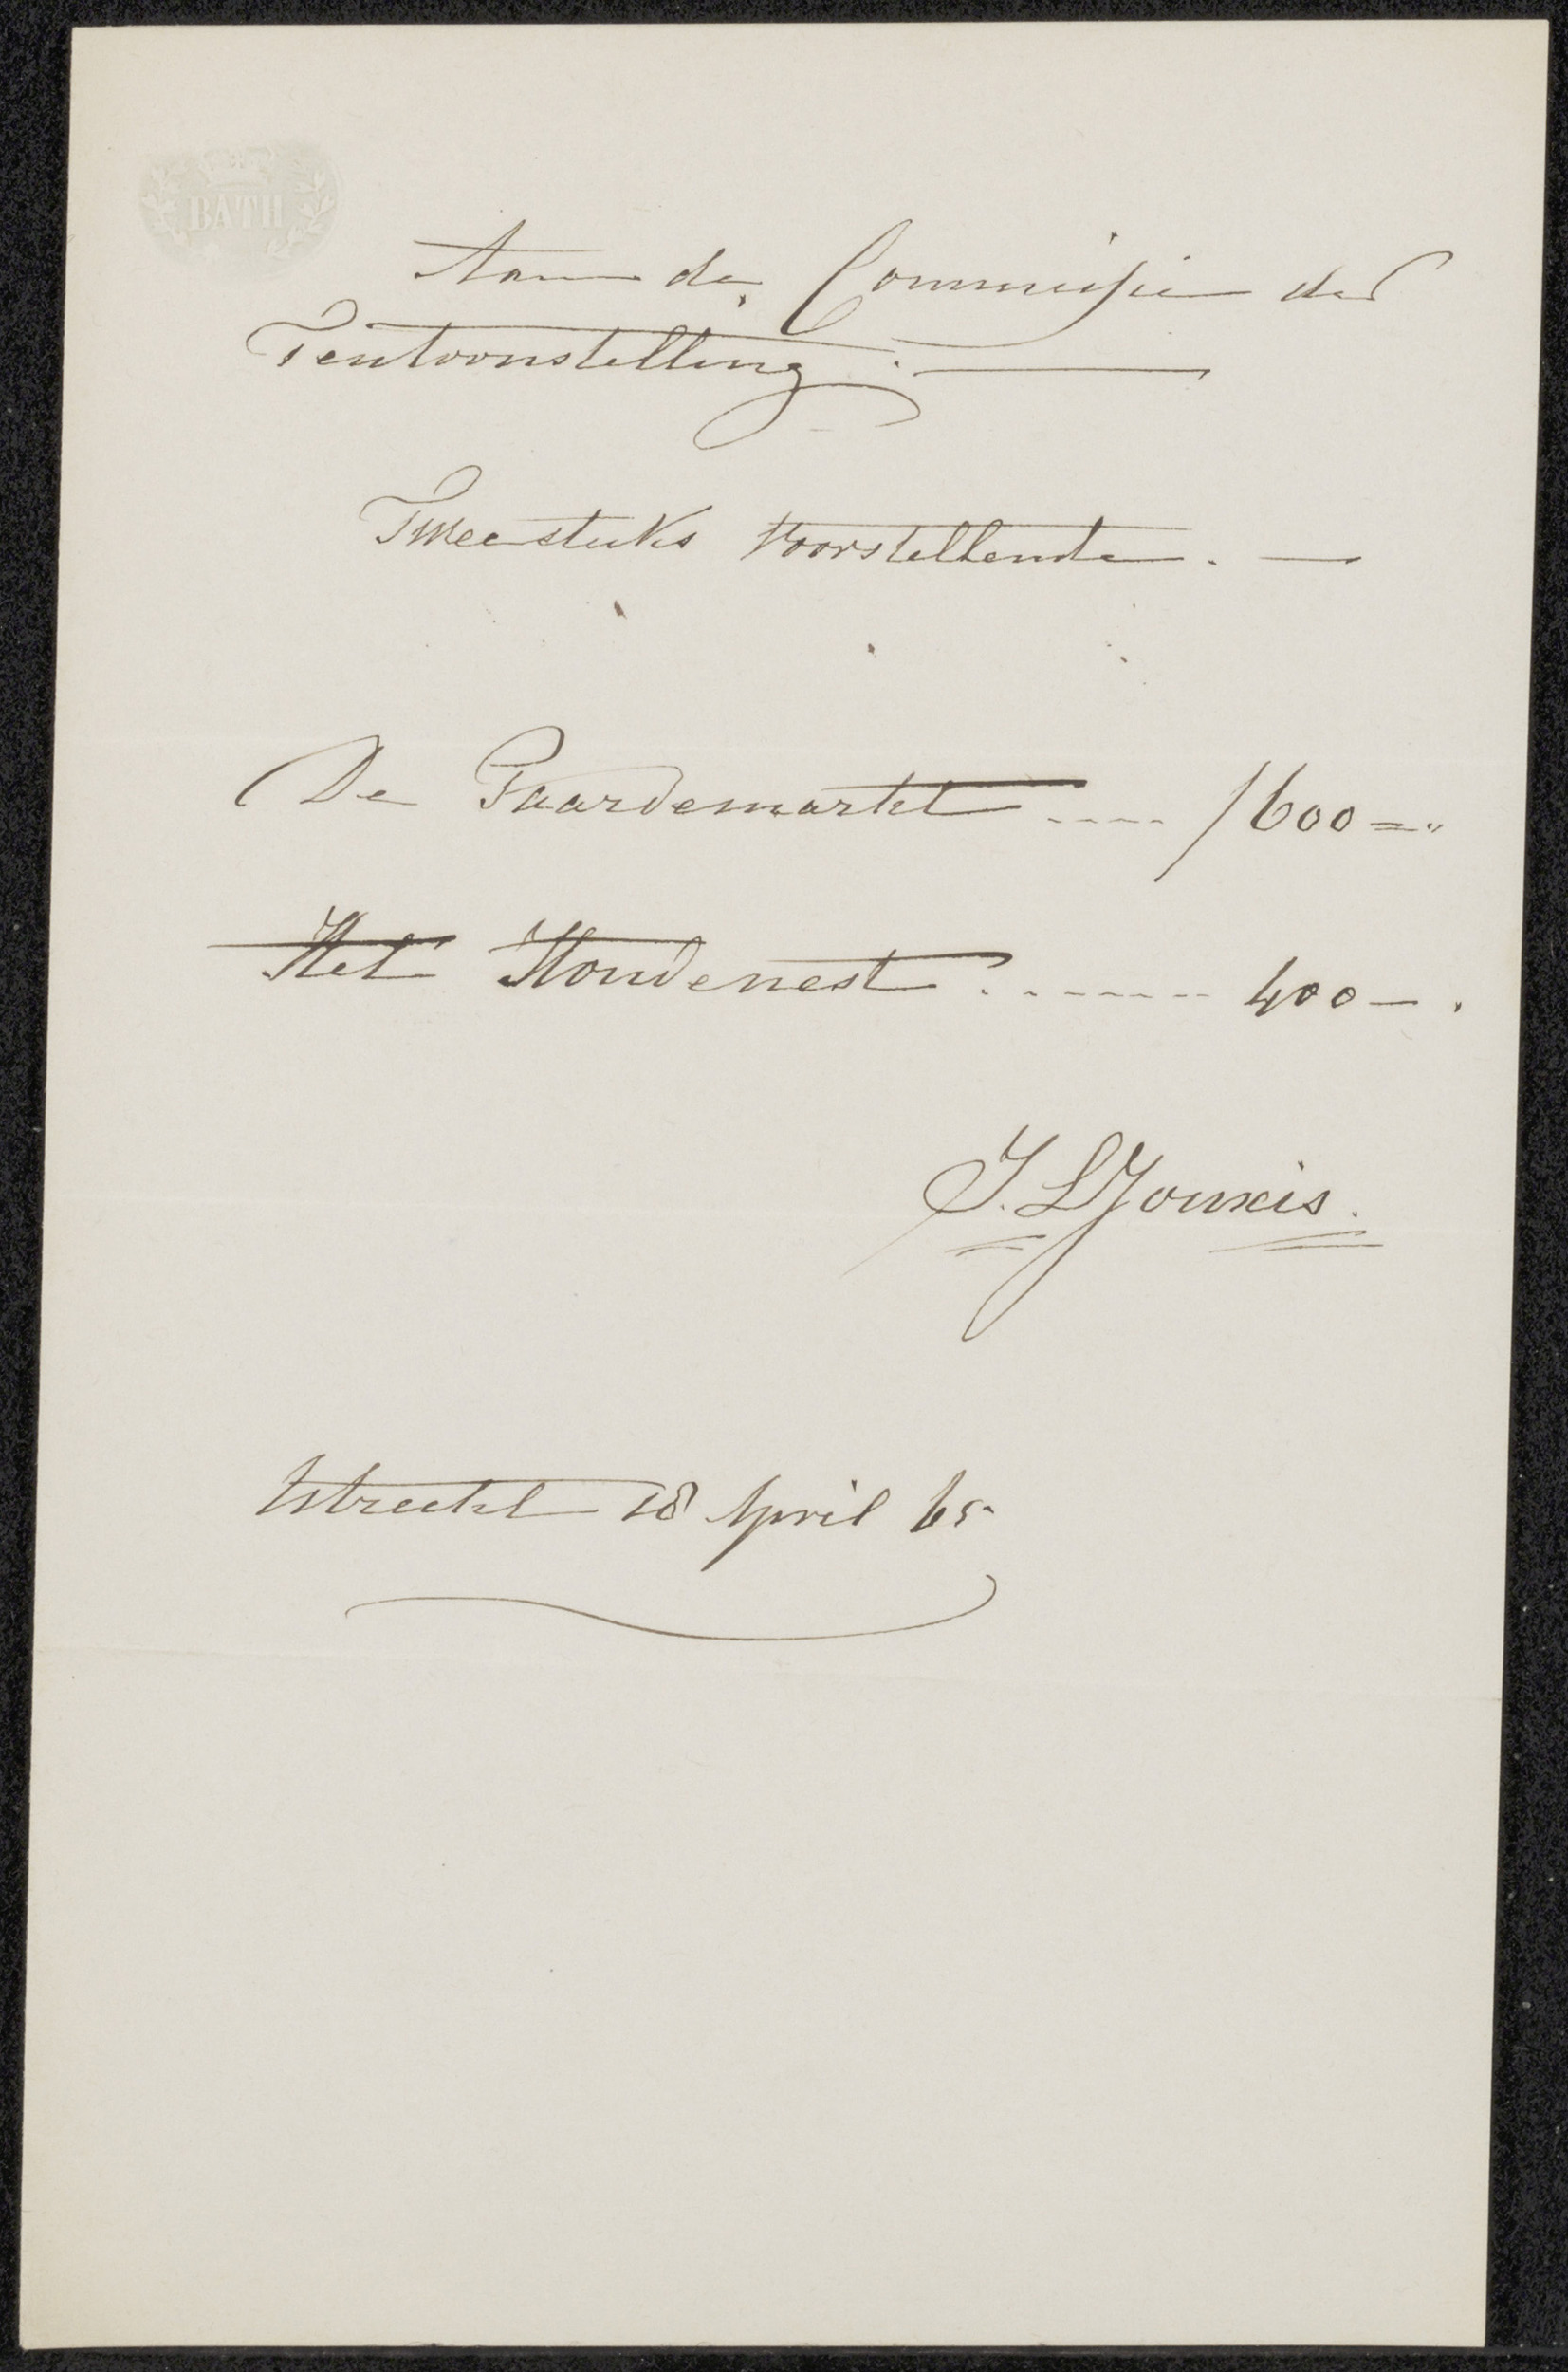 BATH
Aan de Commissie der
Tentoonstelling.
Twee stuks voorstellende. —
De Paardemarkt ..... ƒ 600 =."
Het Hondenest ........ 400 — .
J. L Jonxis.
Utrecht 18 April 65